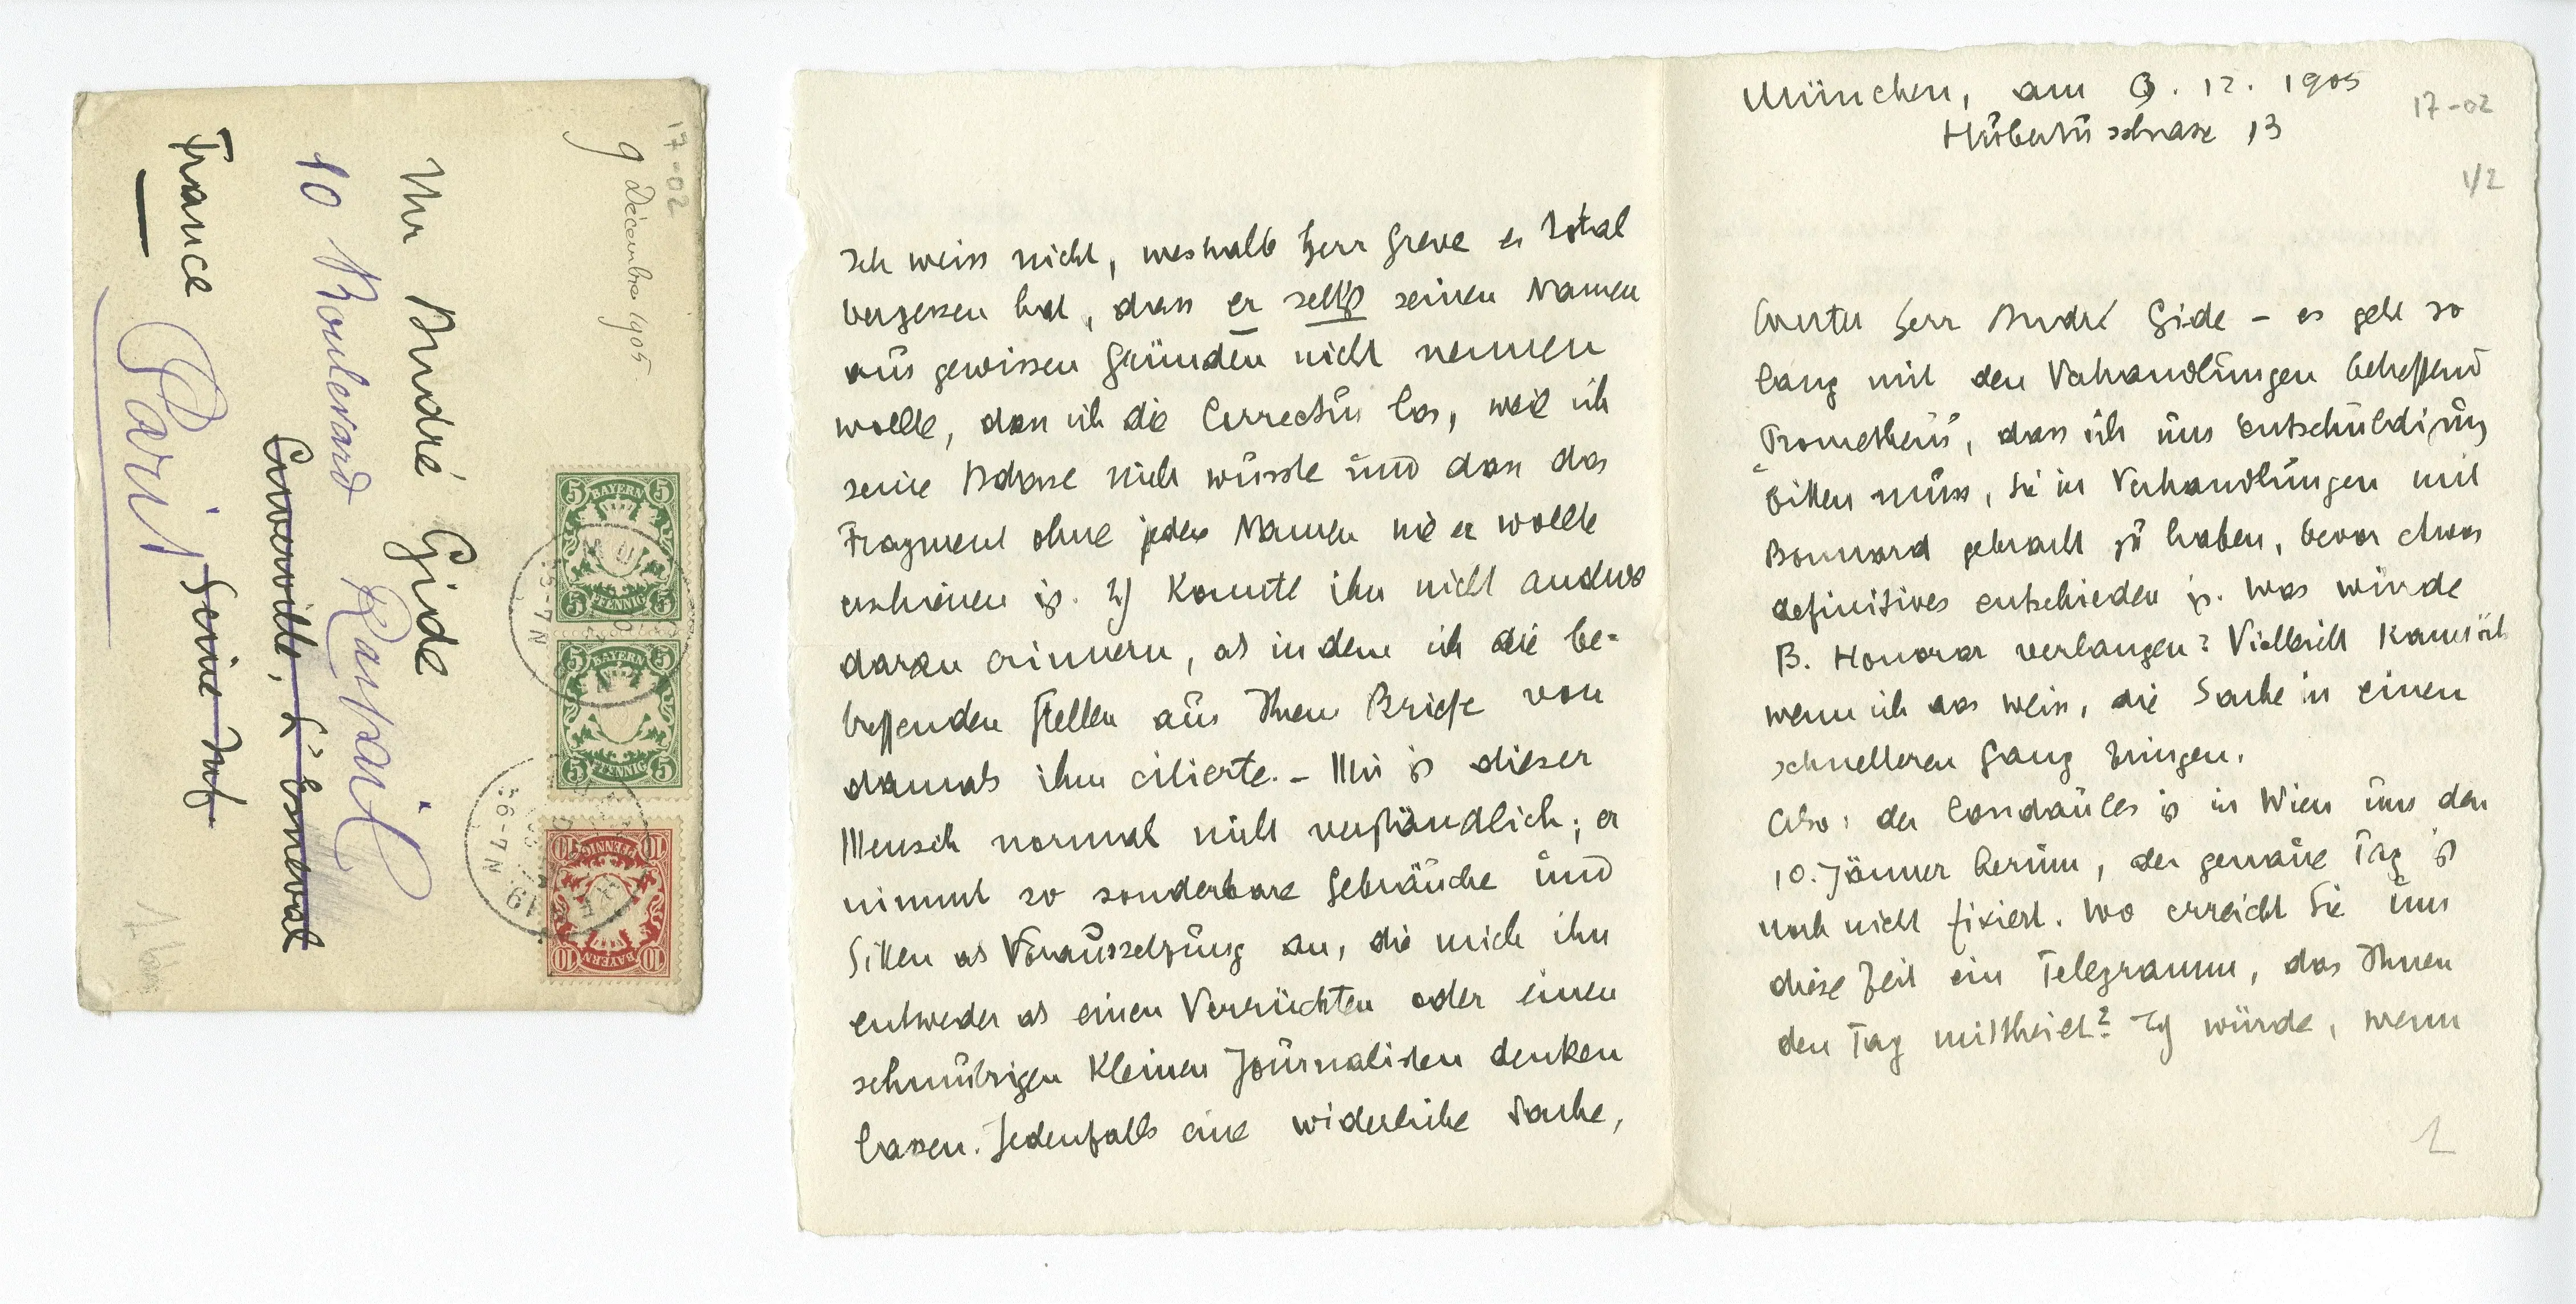 17-02
9 Décembre 1905.
Mr André Gide
10 Boulevard Raspail
Cuverville, L'Esneval
France Paris Seine Inf.
BAYERN
5 5
5 PFENNIG 5
BAYERN
5 5
5 PFENNIG 5
BAYERN
10 10
10 PFENNIG 10
6-7 N
München, am 9. 12. 1905
17-02
Hubertusstrasse 13
1/2
Werter Herr André Gide – es geht so
lang mit den Verhandlungen betreffend
Prometheus, dass ich um Entschuldigung
bitten muss, Sie in Verhandlungen mit
Bonnard gebracht zu haben, bevor etwas
definitives entschieden ist. Was würde
B. Honorar verlangen? Vielleicht kann ich
wenn ich das weiss, die Sache in einen
schnelleren Gang bringen.
Also: der Candaules ist in Wien um den
10. Jänner herum, der genaue Tag ist
noch nicht fixiert. Wo erreicht Sie um
diese Zeit ein Telegramm, das Ihnen
den Tag mittheilt? Ich würde, wenn
1
Ich weiss nicht, weshalb Herr Greve es total
vergessen hat, dass er selbst seinen Namen
aus gewissen Gründen nicht nennen
wollte, dass ich die Correctur las, weil ich
seine Adresse nicht wusste und dass das
Fragment ohne jeden Namen wie er wollte
erschienen ist. Ich konnte ihn nicht anders
daran erinnern, als indem ich die be-
treffenden Stellen aus Ihrem Briefe von
damals ihm citierte. – Mir ist dieser
Mensch normal nicht verständlich; er
nimmt so sonderbare Gebräuche und
Sitten als Voraussetzung an, die mich ihn
entweder als einen Verrückten oder einen
schmutzigen kleinen Journalisten denken
lassen. Jedenfalls eine widerliche Sache,